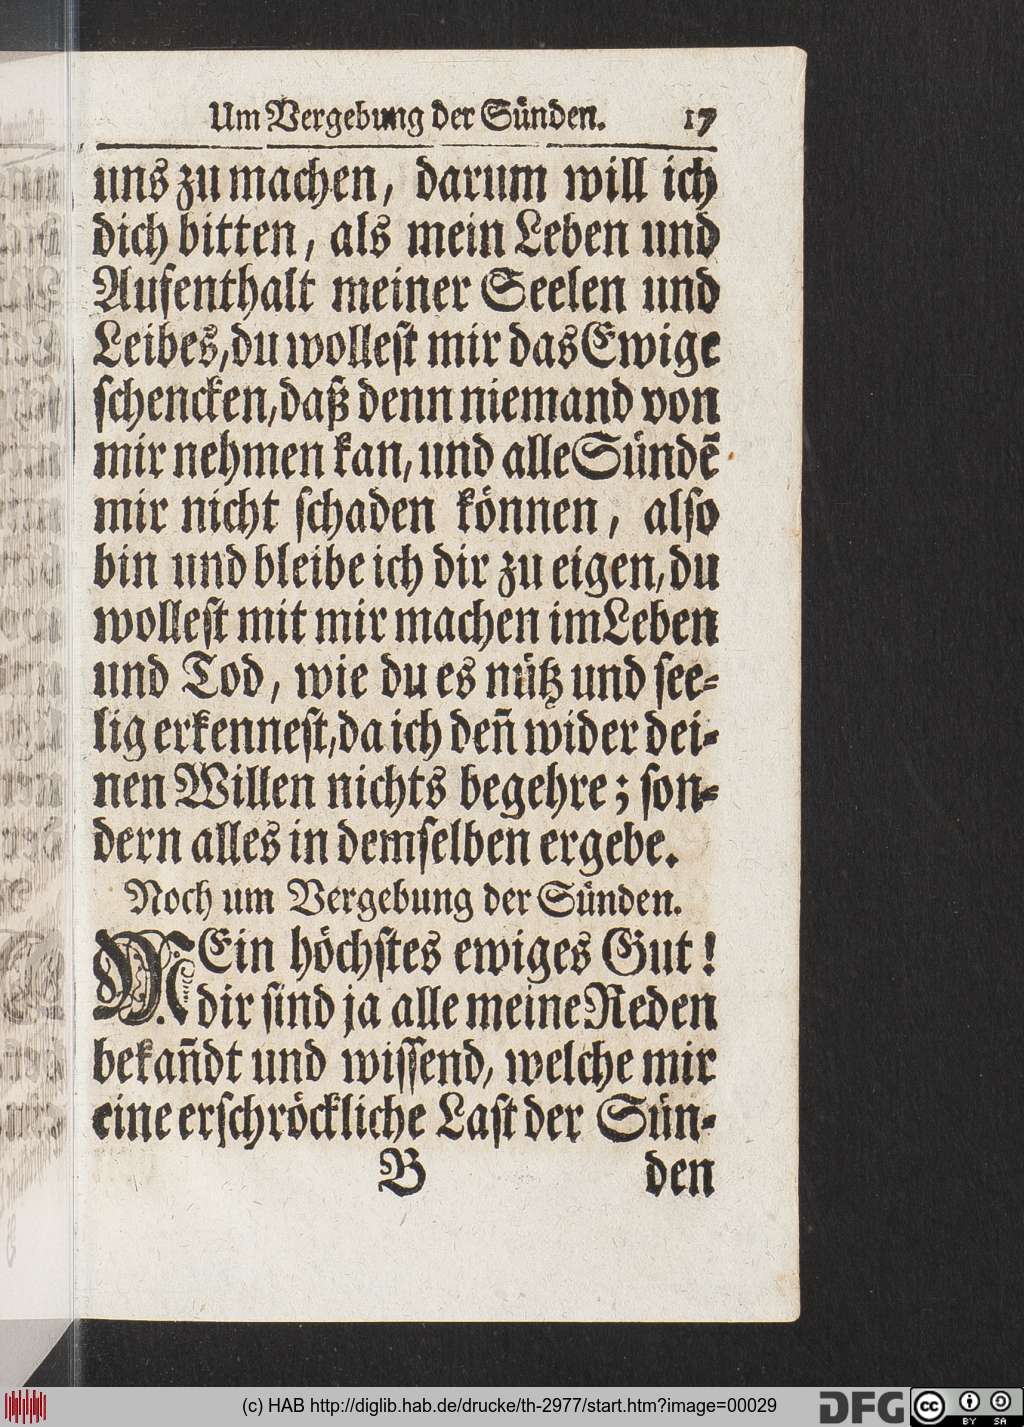 Um Vergebung der Sünden. 17
uns zu machen, darum will ich
dich bitten, als mein Leben und
Aufenthalt meiner Seelen und
Leibes, du wollest mir das Ewige
schencken, daß denn niemand von
mir nehmen kan, und alle Sündẽ
mir nicht schaden können, also
bin und bleibe ich dir zu eigen, du
wollest mit mir machen im Leben
und Tod, wie du es nütz und see-
lig erkennest, da ich deñ wider dei-
nen Willen nichts begehre; son-
dern alles in demselben ergebe.
Noch um Vergebung der Sünden.
MEin höchstes ewiges Gut!
dir sind ja alle meine Reden
bekañdt und wissend, welche mir
eine erschröckliche Last der Sün-
B den
(c) HAB http://diglib.hab.de/drucke/th-2977/start.htm?image=00029
DFG
cc BY SA